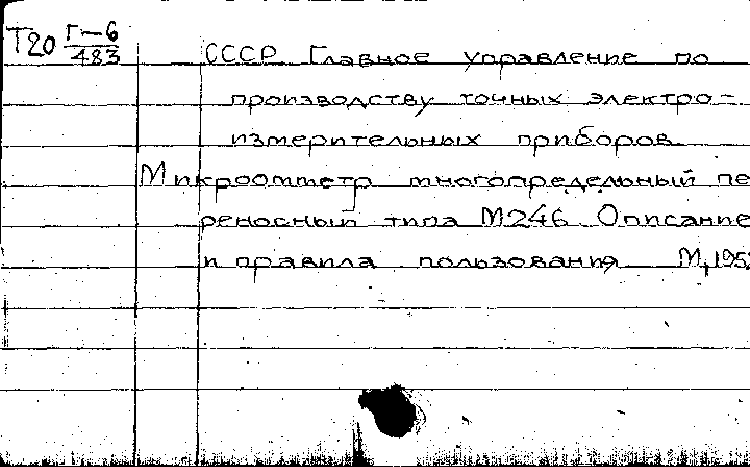 Т20 Г-6
483
СССР Главное управление по
производству точных электро-
измерительных приборов
Микроомметр многопредельный пе
реносный типа М246 Описание
и правила пользования М, 195